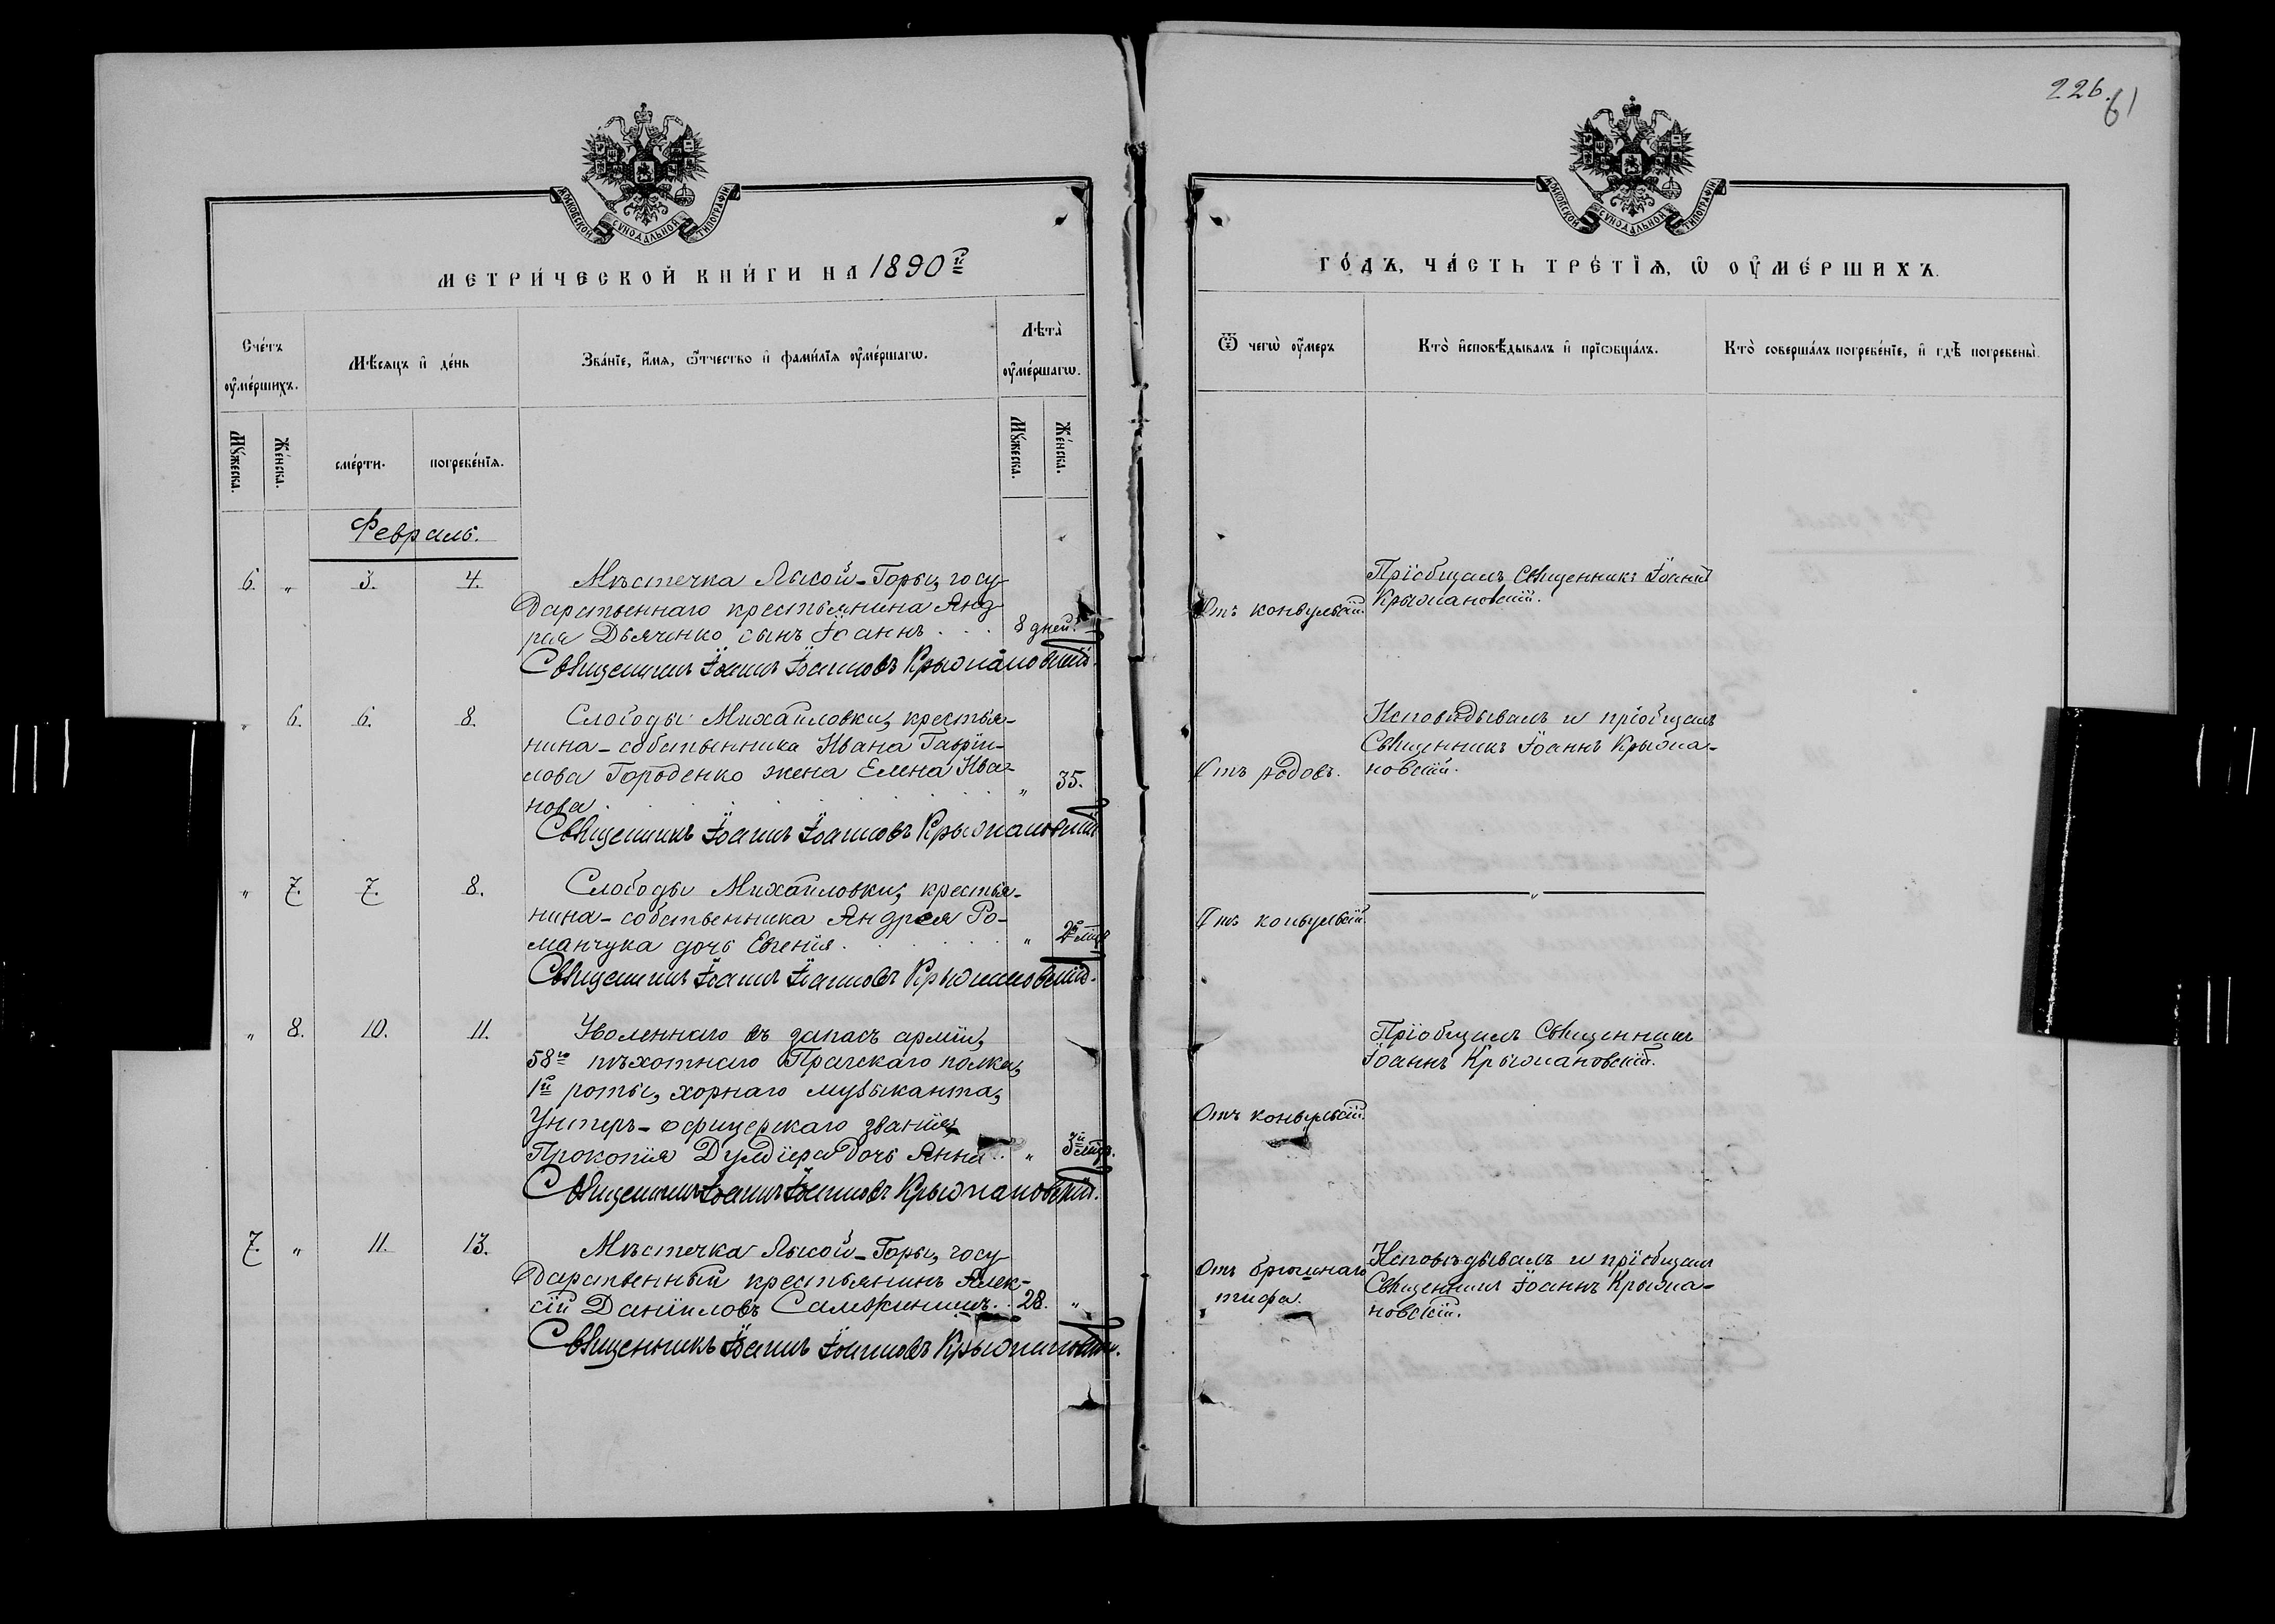 226.
61
МОСКОВСКОЙ СѴНОДАЛЬНОЙ ТИПОГРАФІИ
МОСКОВСКОЙ СѴНОДАЛЬНОЙ ТИПОГРАФІИ
МЕТРИ́ЧЕСКОЙ КНИ́ГИ НА 1890й
ГО́ДЪ, ЧА́СТЬ ТРЕ́ТІѦ, Ѡ ОУ҆МЕ́РШИХЪ.
Сче́тъ оу҆ме́ршихъ.
Мѣ́сяцъ и҆ де́нь
Зва́нїе, и҆́мя, ѻ҆́тчество и҆ фами́лїя оу҆ме́ршагѡ.
Лѣта̀ оу҆ме́ршагѡ.
Ѿ чегѡ̀ оу҆́меръ
Кто̀ и҆сповѣ́дывалъ и҆ прїѡбща́лъ.
Кто̀ соверша́лъ погребе́нїе, и҆ гдѣ̀ погребены̀.
Мꙋ́жеска.
Же́нска.
сме́рти.
погребе́нїя.
Мꙋ́жеска.
Же́нска.
Февраль.
6. " 3. 4. Мѣстечка Лысой-Горы, госу-
дарственнаго крестьянина Анд-
рея Дьяченко сынъ Іоаннъ . . . 8 дней.
Священникъ Іоаннъ Іоанновъ Крыжановскій.
Отъ конвульсій.
Пріобщалъ Священникъ Іоаннъ
Крыжановскій.
" 6. 6. 8. Слободы Михайловки, крестья-
нина-собственника Ивана Гаврїи-
лова Городенко жена Елена Ива-
нова . . . " 35.
Священникъ Іоаннъ Іоанновъ Крыжановскій
Отъ родовъ.
Исповѣдывалъ и пріобщалъ
Священникъ Іоаннъ Крыжа-
новскій.
" 7. 7. 8. Слободы Михайловки, крестья-
нина-собственника Андрея Ро-
манчука дочь Евгенія . . . " 2х мѣс.
Священникъ Іоаннъ Іоанновъ Крыжановскій.
Отъ конвульсій.
"
" 8. 10. 11. Уволеннаго въ запасъ арміи,
58го пѣхотнаго Прагскаго полка,
1й роты, хорнаго музыканта,
Унтеръ-офицерскаго званія,
Прокопія Дулдіера дочь Анна . . " 3й мѣс.
Священникъ Іоаннъ Іоанновъ Крыжановскій.
Отъ конвульсій.
Пріобщалъ Священникъ
Іоаннъ Крыжановскій.
7. " 11. 13. Мѣстечка Лысой-Горы, госу-
дарственный крестьянинъ Алек-
сій Даніиловъ . . 28. "
Священникъ Іоаннъ Іоанновъ Крыжановскій.
Отъ брюшнаго
тифа.
Исповѣдывалъ и пріобщалъ
Священникъ Іоаннъ Крыжа-
новскій.